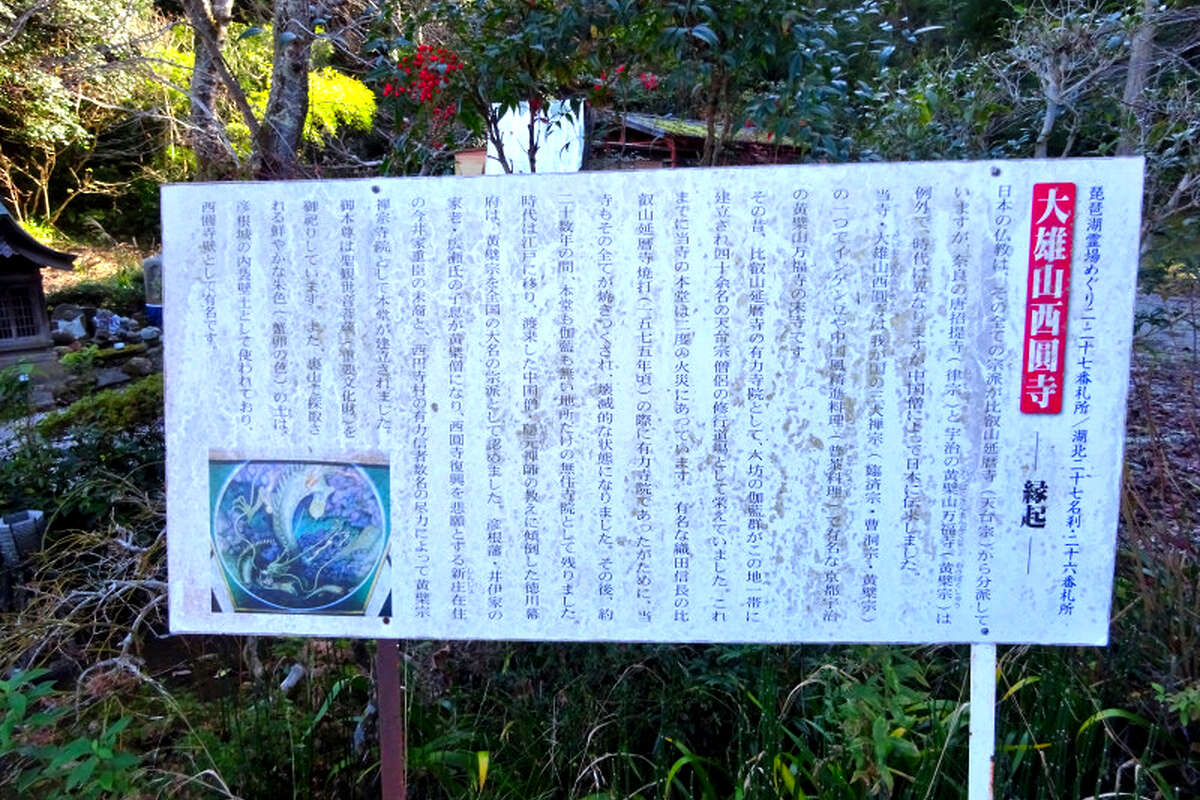 琵琶湖霊場めぐり二ー二十七番札所／湖北二十七名刹・二十六番札所
大雄山西圓寺
縁起
日本の仏教は、その全ての宗派が比叡山延暦寺（天台宗）から分派して
いますが、奈良の唐招提寺（律宗）と宇治の黄檗山万福寺（黄檗宗）は
例外で、時代は異なりますが中国僧によって日本に伝来しました。
当寺・大雄山西圓寺は我が国の三大禅宗（臨済宗・曹洞宗・黄檗宗）
の一つでインゲン豆や中国風精進料理（普茶料理）で有名な京都宇治
の黄檗山万福寺の末寺です。
その昔、比叡山延暦寺の有力寺院として、六坊の伽藍群がこの地一帯に
建立され四十余名の天台宗僧侶の修行道場として栄えていました。これ
までに当寺の本堂は二度の火災にあっています。有名な織田信長の比
叡山延暦寺焼打（一五七五年頃）の際に有力寺院であったがために、当
寺もその全てが焼きつくされ、壊滅的な状態になりました。その後、約
二十数年の間、本堂も伽藍も無い地所だけの無住寺院として残りました
時代は江戸に移り、渡来した中国僧、隠元禅師の教えに傾倒した徳川幕
府は、黄檗宗を全国の大名の宗派として認めました。彦根藩・井伊家の
家老・広瀬氏の子息が黄檗僧になり、西圓寺復興を悲願とする新庄在住
の今井家重臣の末裔と、西円寺村の有力信者数名の尽力によって黄檗宗
禅宗寺院として本堂が建立されました。
御本尊は聖観世音菩薩（重要文化財）を
御祀りしています。また、裏山で採取さ
れる鮮やかな朱色（蟹卵の色）の土は、
彦根城の内装壁土として使われており、
西圓寺壁として有名です。